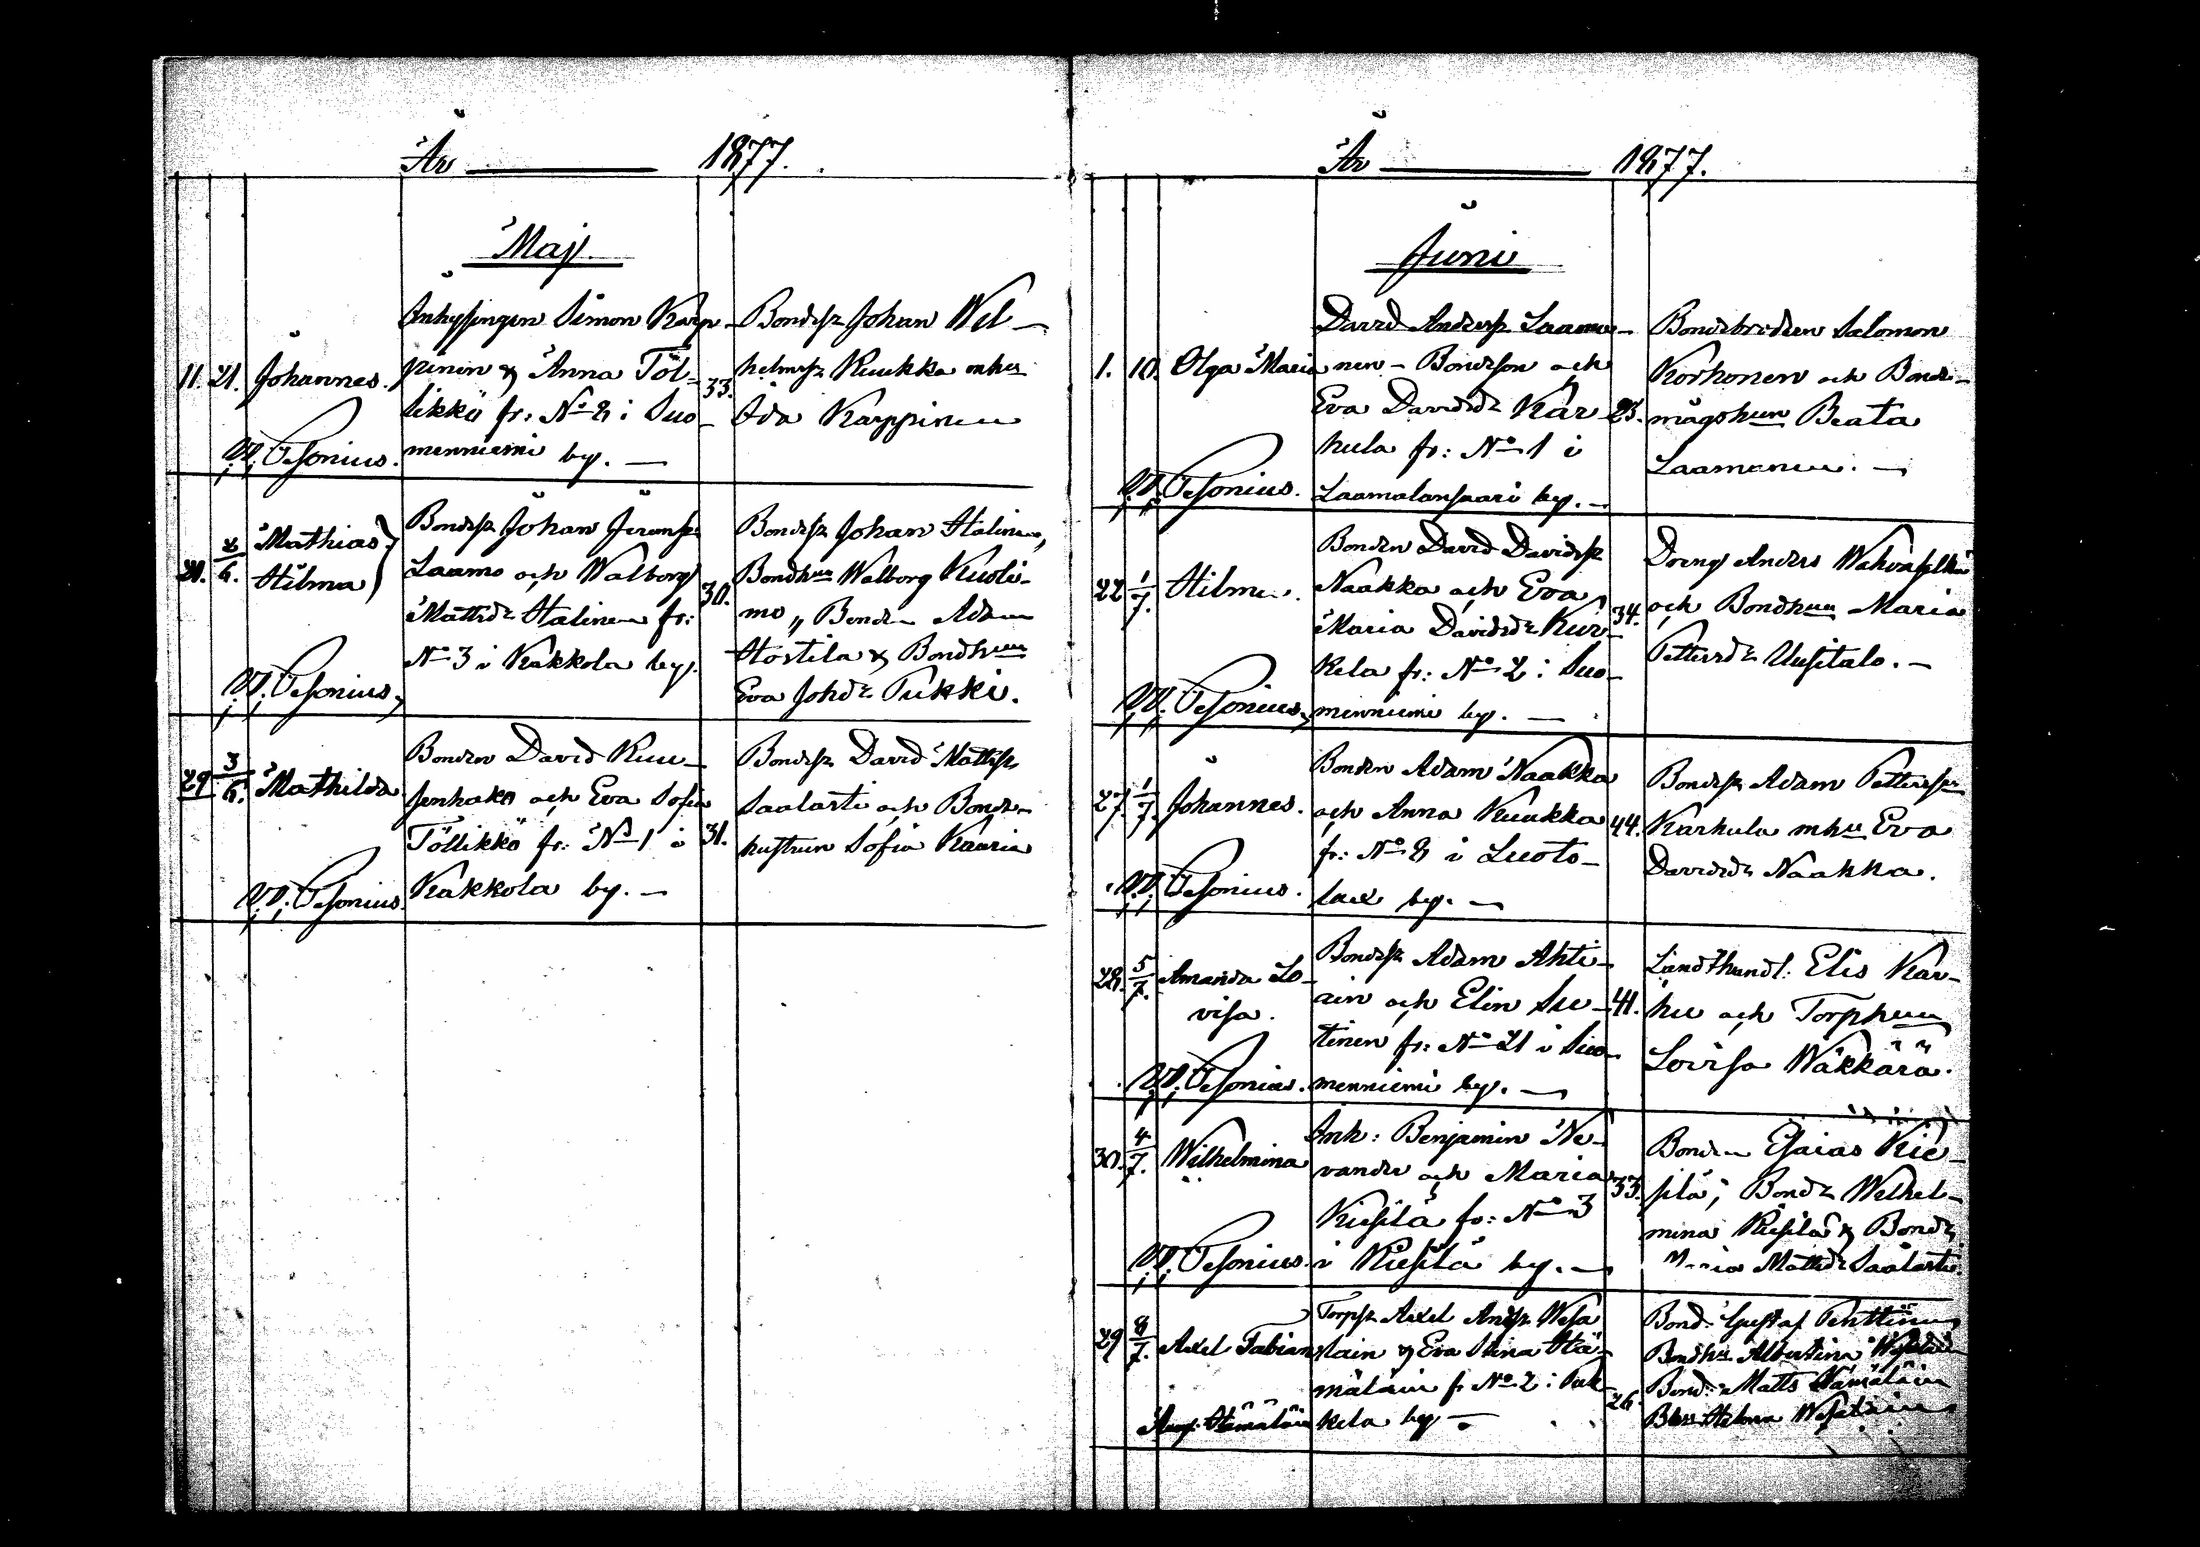 År 1877.
Maj.
11. 21. Johannes.
V. V. Pesonius.
Inhysingen Simon Karp-
pinen & Anna Töl-
likkö fr: No 8 i Suo-
menniemi by. —
33.
Bondes. Johan Wil-
helmss. Kuukka m hu
Ida Karppinen
21. 2/6. Mathias
Hilma
V. V. Pesonius
Bondes. Johan Jeremss.
Laamo och Walborg
Mattsdr Halinen fr:
No 3 i Kakkola by.
30.
Bondes. Johan Halinen,
Bondhun Walborg Kuoli-
mo „ Bonden Adam
Hostila & Bondhun
Eva Johdr Pukki.
29 3/6. Mathilda
V. V. Pesonius.
Bonden David Kuu-
senhako och Eva Sofia
Töllikkö fr: No 1 i
Kakkola by. —
31.
Bondes. David Mattss.
Saalasti och Bonde-
hustrun Sofia Kaaria
År 1877.
Juni
1. 10. Olga Maria
V. V. Pesonius.
David Anderss. Laama-
nen - Bondeson och
Eva Davidsdr Kar-
hula fr: No 1 i
Laamalansaari by. —
23.
Bondebrodren Salomon
Korhonen och Bonde-
mågshun Beata
Laamanen. —
22 1/7. Hilma.
V. V. Pesonius,
Bonden David Davidss.
Naakka och Eva
Maria Davidsdr Kur-
kela fr: No 2 i Suo-
menniemi by. —
34.
Dreng Anders Wahvaselkä
och Bondhun Maria
Pettersdr Uusitalo. —
27. 1/7. Johannes.
V. V. Pesonius.
Bonden Adam Naakka
och Anna Kuukka
fr: No 8 i Luoto-
lax by. —
44.
Bondes. Adam Petterss.
Karhula m hu Eva
Davidsdr Naakka.
28. 5/7. Amanda Lo-
visa.
V. V. Pesonius.
Bondes. Adam Ahti-
ain och Elin Su-
tinen fr: No 21 i Suo-
menniemi by. —
41.
Landthandl: Elis Kar-
hu och Torphun
Lovisa Wäkkärä.
30. 4/7. Wilhelmina
V. V. Pesonius.
Inh: Benjamin Ne-
vander och Maria
Kiesilä fr: No 3
i Kiesilä by. —
33.
Bonden Esaias Kie-
silä; Bonddr Wilhel-
mina Kiesilä & Bonddr
Maria Mattsdr Saalasti.
29 8/7. Axel Fabian
Hämäläin
Torps. Axel Andss. Wesa
lain & Eva Stina Hä-
mäläin fr No 2 i Puk-
kela by —
26.
Bond. Gustaf Penttinen
Bondhu Albertina
Bond. Matts Hämäläin
Hilma Wesalain